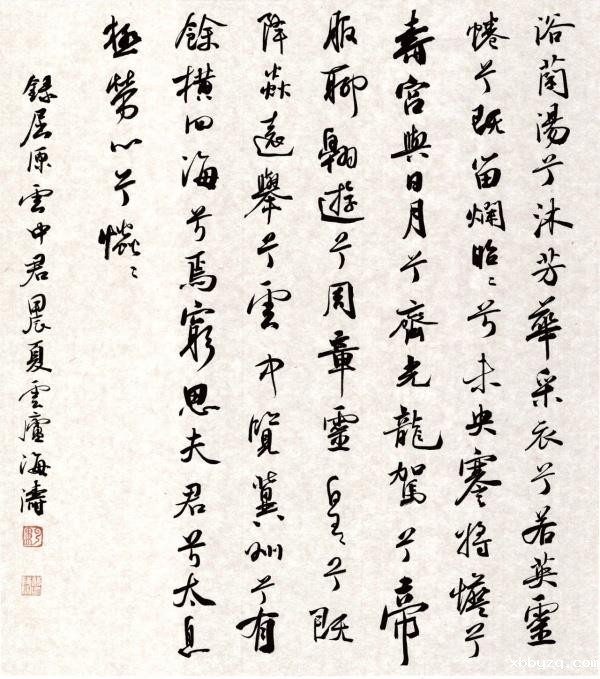 浴蘭湯兮沐芳華采衣兮若英靈
蜷兮既留爛昭〻兮未央蹇將憺兮
壽宮與日月兮齊光龍駕兮帝
服聊翱遊兮周章靈皇〻兮既
降猋遠舉兮雲中覽冀州兮有
餘橫四海兮焉窮思夫君兮太息
極勞心兮忡〻
錄屈原雲中君晨夏雲廬海濤
xbbyzq.com